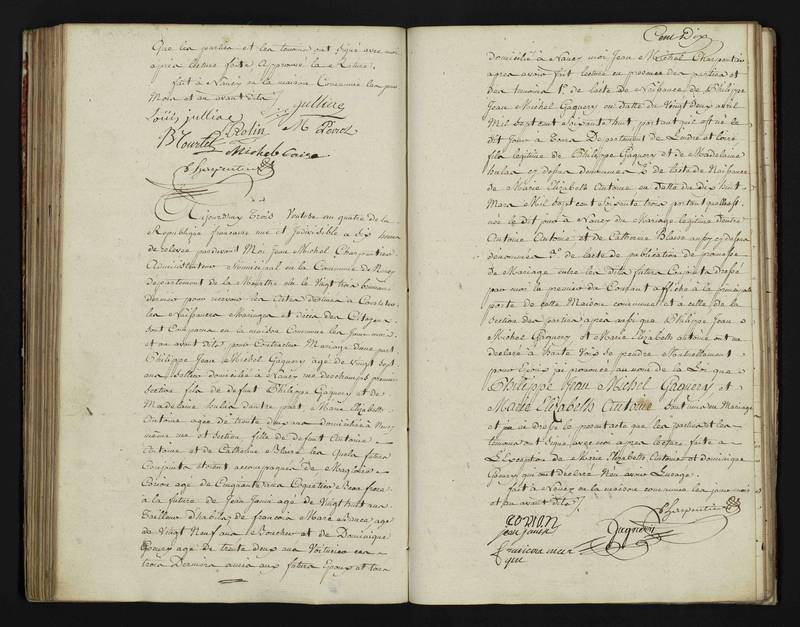 Que les parties et les temoins ont signé avec moi
après lecture faite approuvé la rature.
fait à Nancy en la maison Commune les jour
Mois et an avant dits
Louis jullien jullien
B Tourtel Rolin M
Michel Caire
Charpentier
Aujourdhuy trois Ventose an quatre de la
République française une et indivisible a dix heures
de relevée pardevant Moi Jean Michel Charpentier
Administrateur Municipal en la Commune de Nancy
département de la Meurthe élu le Vingt trois brumaire
dernier pour recevoir les actes destinés à Constater
les Naissances Mariages et décès des Citoyens
sont Comparus en la maison Commune les Jour mois
et an avant dits pour Contracter Mariage d'une part
Philippe Jean Michel Gaguery agé de Vingt sept
ans Sellier domicilié à Nancy rue deschamps premiere
Section fils de defunt Philippe Gaguery et de
Madelaine d'autre part, Marie Elizabeth
Antoine agée de trente deux ans domiciliée à Nancy
même rue et Section fille de defunt Antoine
Antoine et de Catherine Blaise les Quels futurs
Conjoints étoient accompagnés de
agé de Cinquante ans Coquetier Beau frere
à la future de Jean Janin agé de Vingt huit ans
Tailleur d'habits, de françois Marc agé
de Vingt Neuf ans Boucher et de Dominique
agé de trente deux ans Voiturier ces
trois Derniers amis aux futurs Epoux et tous
Cent Dix
domiciliés à Nancy moi Jean Michel Charpentier
après avoir fait lecture en presence des parties et
des temoins 1° de lacte de Naissance de Philippe
Jean Michel Gaguery en datte du Vingt deux avril
Mil sept cent soixante huit portant qu'il est né le
dit Jour à Tours Departement de l'indre et loire
fils legitime de Philippe Gaguery et de Madelaine
cy dessus denommés 2° de lacte de Naissance
de Marie Elizabeth Antoine en datte du dix huit
Mars Mil sept cent Soixante trois portant quelle est
née le dit jour à Nancy du Mariage legitime d'entre
Antoine Antoine et de Catherine Blaise aussy cy dessus
denommés 3° de lacte de publication de promesse
de Mariage entre les dits futurs Conjoints Dressé
par moi le premier du Courant affiché à la principale
porte de cette Maison commune et à celle de la
Section des parties après aussi que Philippe Jean
Michel Gaguery et Marie Elizabeth antoine ont eu
declaré à haute Voix se prendre Mutuellement
pour Epoux j'ai prononcé au nom de la Loi que
Philippe Jean Michel Gaguery et
Marie Elizabeth Antoine sont unis en Mariage
et j'ai dressé le present acte que les parties et les
temoins ont Signé avec moi après lecture faite à
L'exception de Marie Elizabeth Antoine et dominique
qui ont declaré N'en avoir l'usage.
fait à Nancy en la maison commune les jour mois
et an avant dits
Charpentier
jean janin